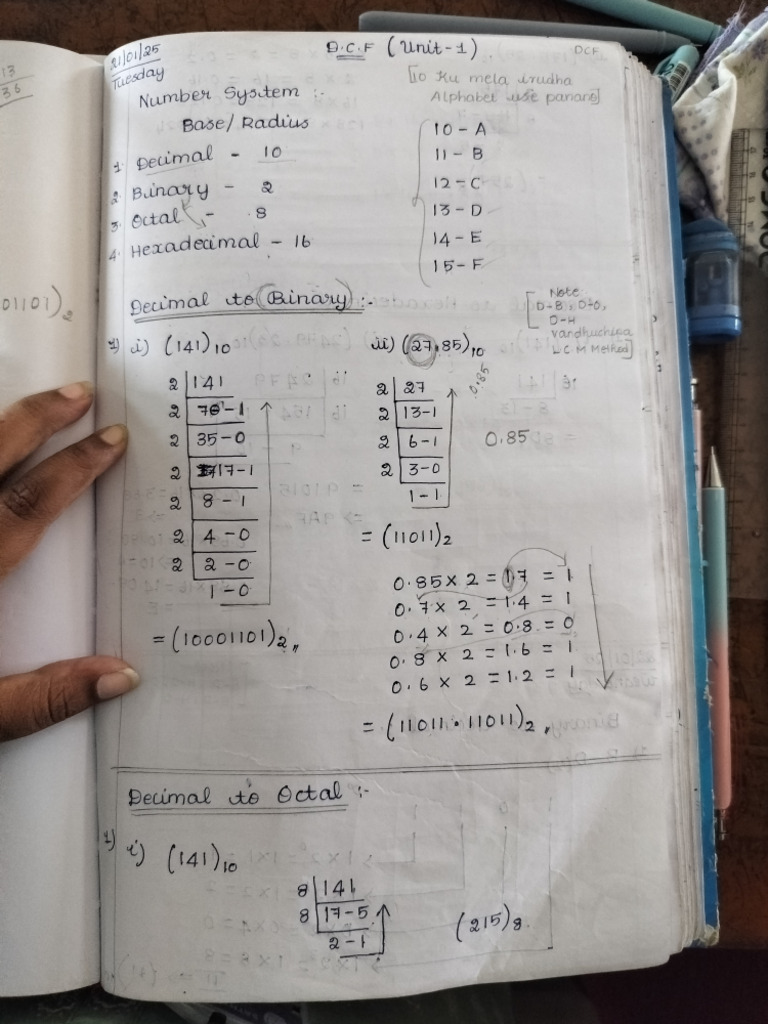 13
36
01101)₂
21/01/25
Tuesday
D.C.F (Unit-1)
DCF
Number System :-
Base/Radius
1. Decimal - 10
2. Binary - 2
3. Octal - 8
4. Hexadecimal - 16
[10 ku mela irudha
Alphabet use panano]
10 - A
11 - B
12 - C
13 - D
14 - E
15 - F
Decimal to Binary :-
[Note
D-B, D-O,
D-H
vandhuchina
L C M Method]
1) i) (141)₁₀
2 | 141
2 | 70 - 1
2 | 35 - 0
2 | 17 - 1
2 | 8 - 1
2 | 4 - 0
2 | 2 - 0
1 - 0
= (10001101)₂,,
ii) (27.85)₁₀
0.85
2 | 27
2 | 13 - 1
2 | 6 - 1
2 | 3 - 0
1 - 1
0.85
= (11011)₂
0.85 × 2 = 1.7 = 1
0.7 × 2 = 1.4 = 1
0.4 × 2 = 0.8 = 0
0.8 × 2 = 1.6 = 1
0.6 × 2 = 1.2 = 1
= (11011.11011)₂,,
Decimal to Octal :-
1) i) (141)₁₀
8 | 141
8 | 17 - 5
2 - 1
(215)₈